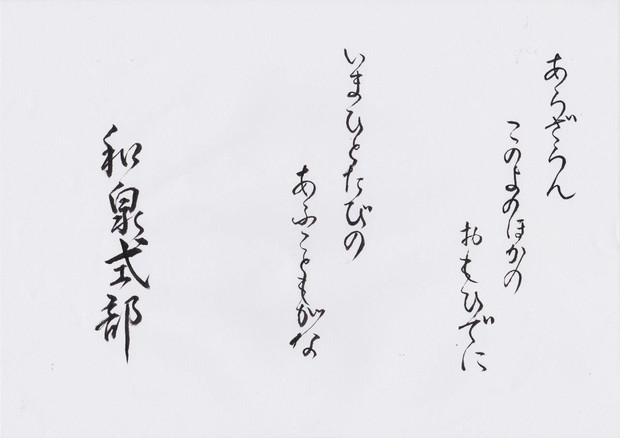 あらざらん
このよのほかの
おもひでに
いまひとたびの
あふこともがな
和泉式部